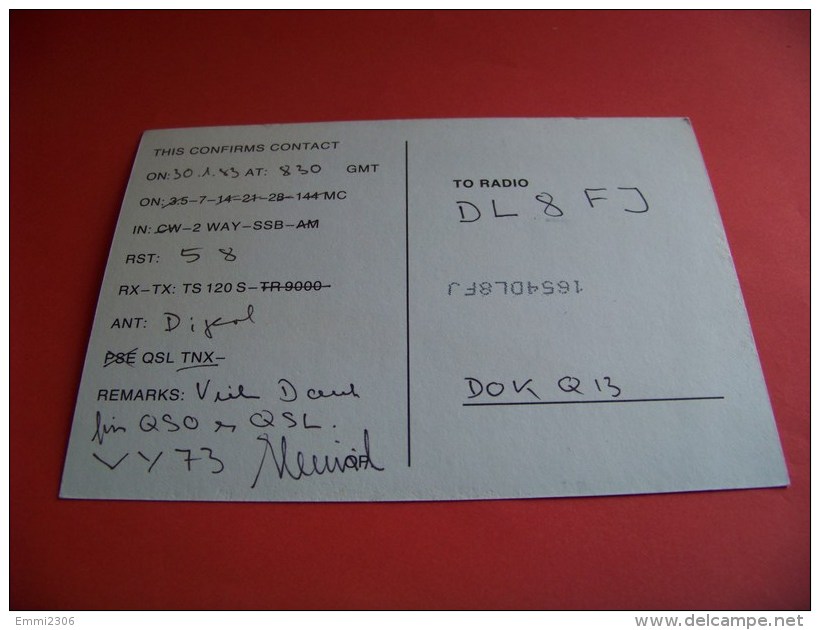 THIS CONFIRMS CONTACT
ON: 30.1.83 AT: 830 GMT
ON: 3.5-7-14-21-28-144 MC
IN: CW-2 WAY-SSB-AM
RST: 58
RX-TX: TS 120 S-TR 9000-
ANT: Dipol
PSE QSL TNX-
REMARKS: Viel Dank
für QSO es QSL.
VY 73
TO RADIO
DL8FJ
1654DL8FJ
DOK Q13
Emmi2306
www.delcampe.net